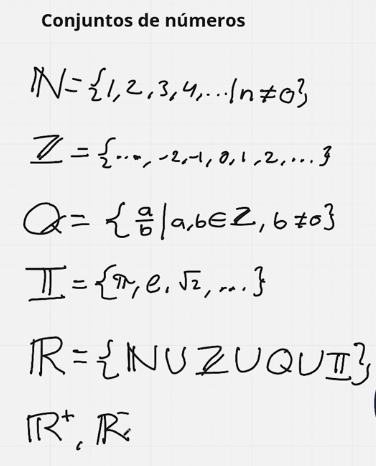 Conjuntos de números
ℕ = {1, 2, 3, 4, ... | n ≠ 0}
ℤ = {..., -2, -1, 0, 1, 2, ...}
ℚ = {a/b | a, b ∈ ℤ, b ≠ 0}
𝕀 = {π, e, √2, ...}
ℝ = {ℕ ∪ ℤ ∪ ℚ ∪ 𝕀}
ℝ⁺, ℝ⁻